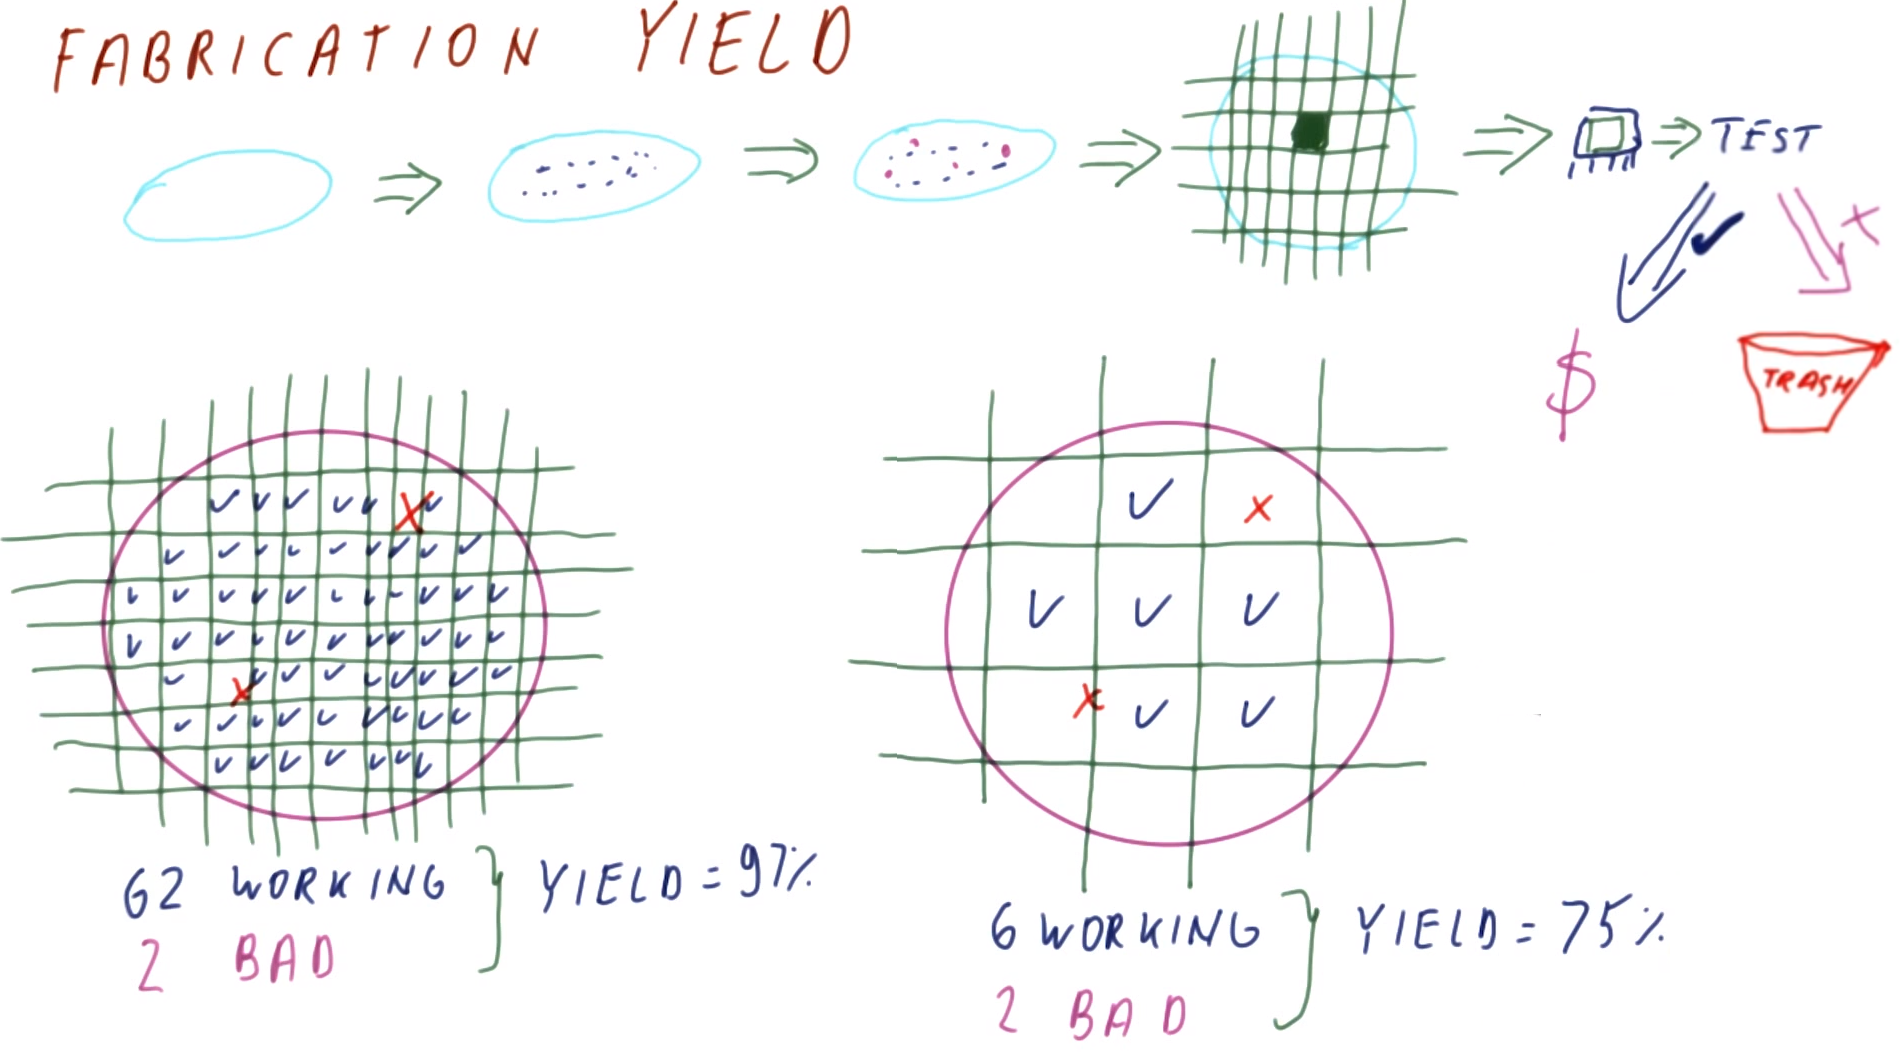 FABRICATION YIELD
TEST
$
TRASH
62 WORKING
2 BAD
YIELD = 97%
6 WORKING
2 BAD
YIELD = 75%